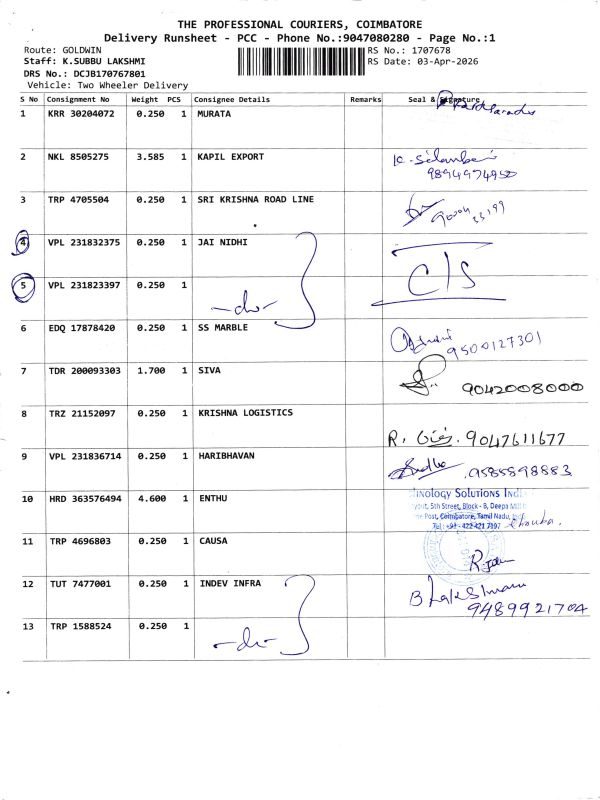 THE PROFESSIONAL COURIERS, COIMBATORE
Delivery Runsheet - PCC - Phone No.:9047080280 - Page No.:1
Route: GOLDWIN
RS No.: 1707678
Staff: K.SUBBU LAKSHMI
RS Date: 03-Apr-2026
DRS No.: DCJB170767801
Vehicle: Two Wheeler Delivery
S No Consignment No Weight PCS Consignee Details Remarks Seal & Signature
1 KRR 30204072 0.250 1 MURATA
2 NKL 8505275 3.585 1 KAPIL EXPORT
9894974950
3 TRP 4705504 0.250 1 SRI KRISHNA ROAD LINE
4 VPL 231832375 0.250 1 JAI NIDHI
C/S
5 VPL 231823397 0.250 1
-do-
6 EDQ 17878420 0.250 1 SS MARBLE
9500127301
7 TDR 200093303 1.700 1 SIVA
9042008000
8 TRZ 21152097 0.250 1 KRISHNA LOGISTICS
R. 9047611677
9 VPL 231836714 0.250 1 HARIBHAVAN
9585898883
10 HRD 363576494 4.600 1 ENTHU
Technology Solutions
5th Street, Block - B, Deepa
Post, Coimbatore, Tamil Nadu,
Tel : +91 - 422 421 7897
11 TRP 4696803 0.250 1 CAUSA
12 TUT 7477001 1 0.250 1 INDEV INFRA
B Lakshmanan
9489921704
13 TRP 1588524 0.250 1
-do-